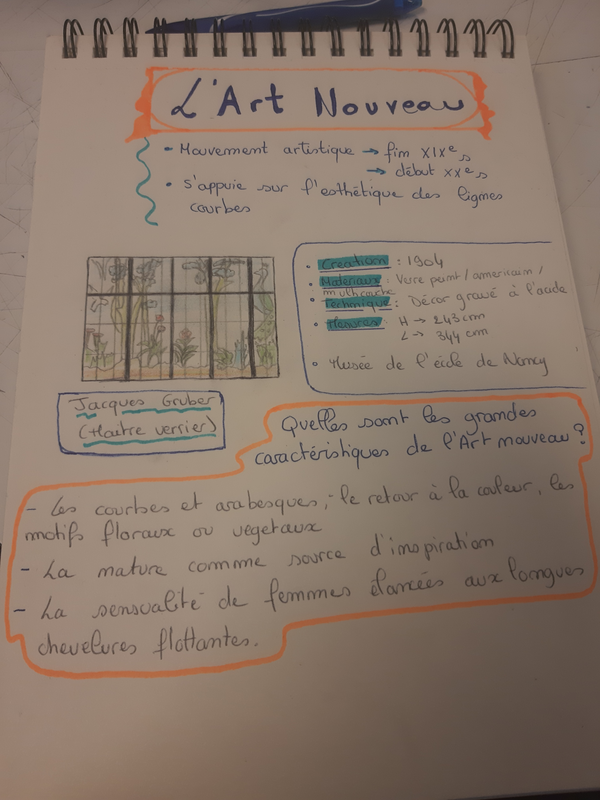 L'Art Nouveau
• Mouvement artistique → fin XIXe s
→ début XXe s
• S'appuie sur l'esthétique des lignes
courbes
• Création : 1904
• Matériaux : Verre peint / americain /
multicouche
• Technique : Décor gravé à l'acide
• Mesures : H → 243 cm
L → 344 cm
• Musée de l'école de Nancy
Jacques Gruber
(Maitre verrier)
Quelles sont les grandes
caractéristiques de l'Art nouveau ?
- Les courbes et arabesques, - le retour à la couleur, les
motifs floraux ou vegetaux
- La nature comme source d'inspiration
- La sensualité de femmes élancées aux longues
chevelures flottantes.